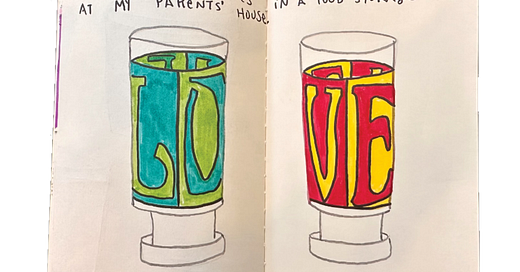 AT MY PARENTS'
HOUSE,
IN A FOOD
LO
VE